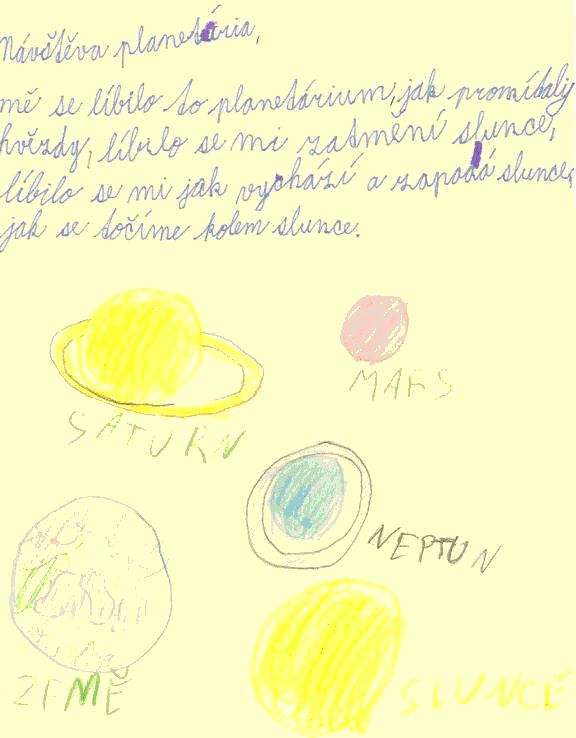 Návštěva planetária,
mě se líbilo to planetárium, jak promítaly
hvězdy, líbilo se mi zatmění slunce,
líbilo se mi jak vychází a zapadá slunce,
jak se točíme kolem slunce.
SATURN
MARS
NEPTUN
ZEMĚ
SLUNCE